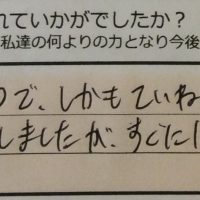 れていかがでしたか?
私達の何よりの力となり今後
で、しかもていね
しましたが、すぐに